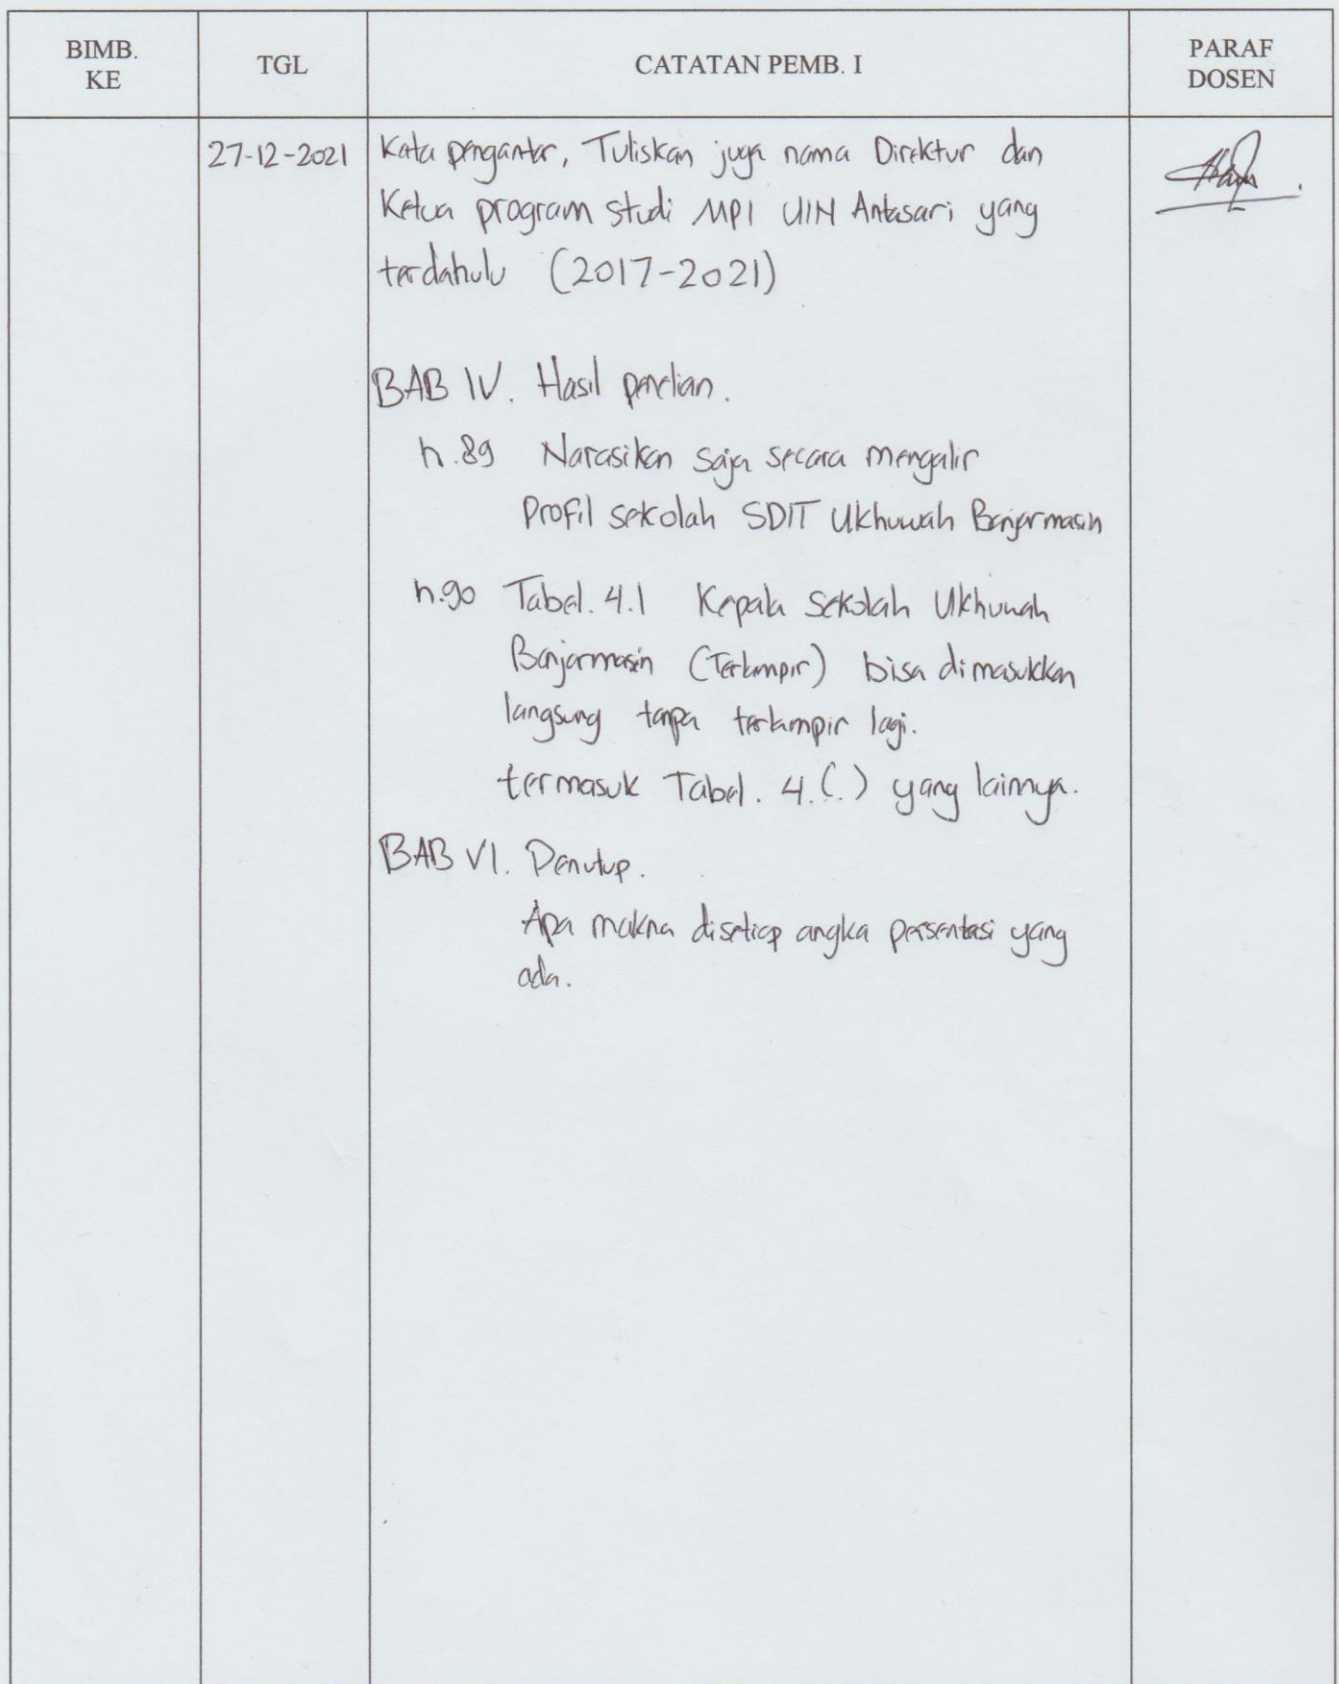 BIMB.
KE
TGL
CATATAN PEMB. I
PARAF
DOSEN
27-12-2021
Kata pengantar, Tuliskan juga nama Direktur dan
Ketua program studi MPI UIN Antasari yang
terdahulu (2017-2021)
BAB IV. Hasil penelian.
h.89 Narasikan saja secara mengalir
Profil sekolah SDIT Ukhuwah Banjarmasin
h.90 Tabel. 4.1 Kepala Sekolah Ukhuwah
Banjarmasin (Terlampir) bisa dimasukkan
langsung tanpa terlampir lagi.
termasuk Tabel. 4.(.) yang lainnya.
BAB VI. Penutup.
Apa makna disetiap angka persentasi yang
ada.